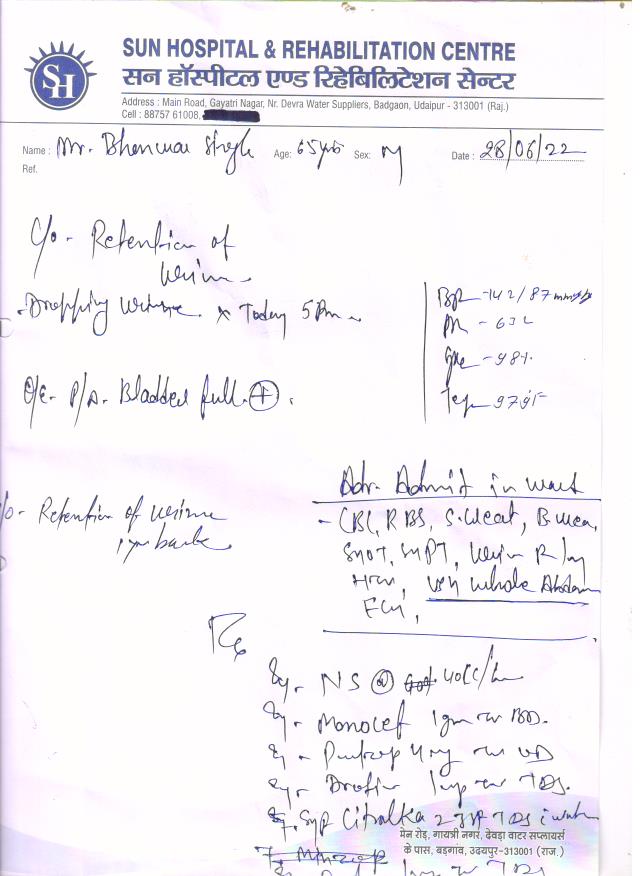 SH
SUN HOSPITAL & REHABILITATION CENTRE
सन हॉस्पीटल एण्ड रिहेबिलिटेशन सेन्टर
Address : Main Road, Gayatri Nagar, Nr. Devra Water Suppliers, Badgaon, Udaipur - 313001 (Raj.)
Cell : 88757 61008,
Name : Mr. Age: 65 yrs Sex: M Date : 28/06/22
Ref.
C/o - Retention of
Urine
- Dropping urine x Today 5 Pm
BP - 142/87 mmHg
PR - 63
- 98%
Temp 97.9°F
O/E - P/A - Bladder full (+).
Adv. Admit in ward
- CBC, RBS, S. Creat, B. Urea,
SGOT, SGPT, Urine R/M
USG whole Abdomen
ECG,
Retention of urine
1 year back
Rx
NS @ 40cc/hr
- Monocef 1gm BD.
40mg OD
1amp TDS.
Syp Citralka 2 TSF TDS water
मेन रोड़, गायत्री नगर, देवड़ा वाटर सप्लायर्स
के पास, बड़गांव, उदयपुर-313001 (राज.)
TDS